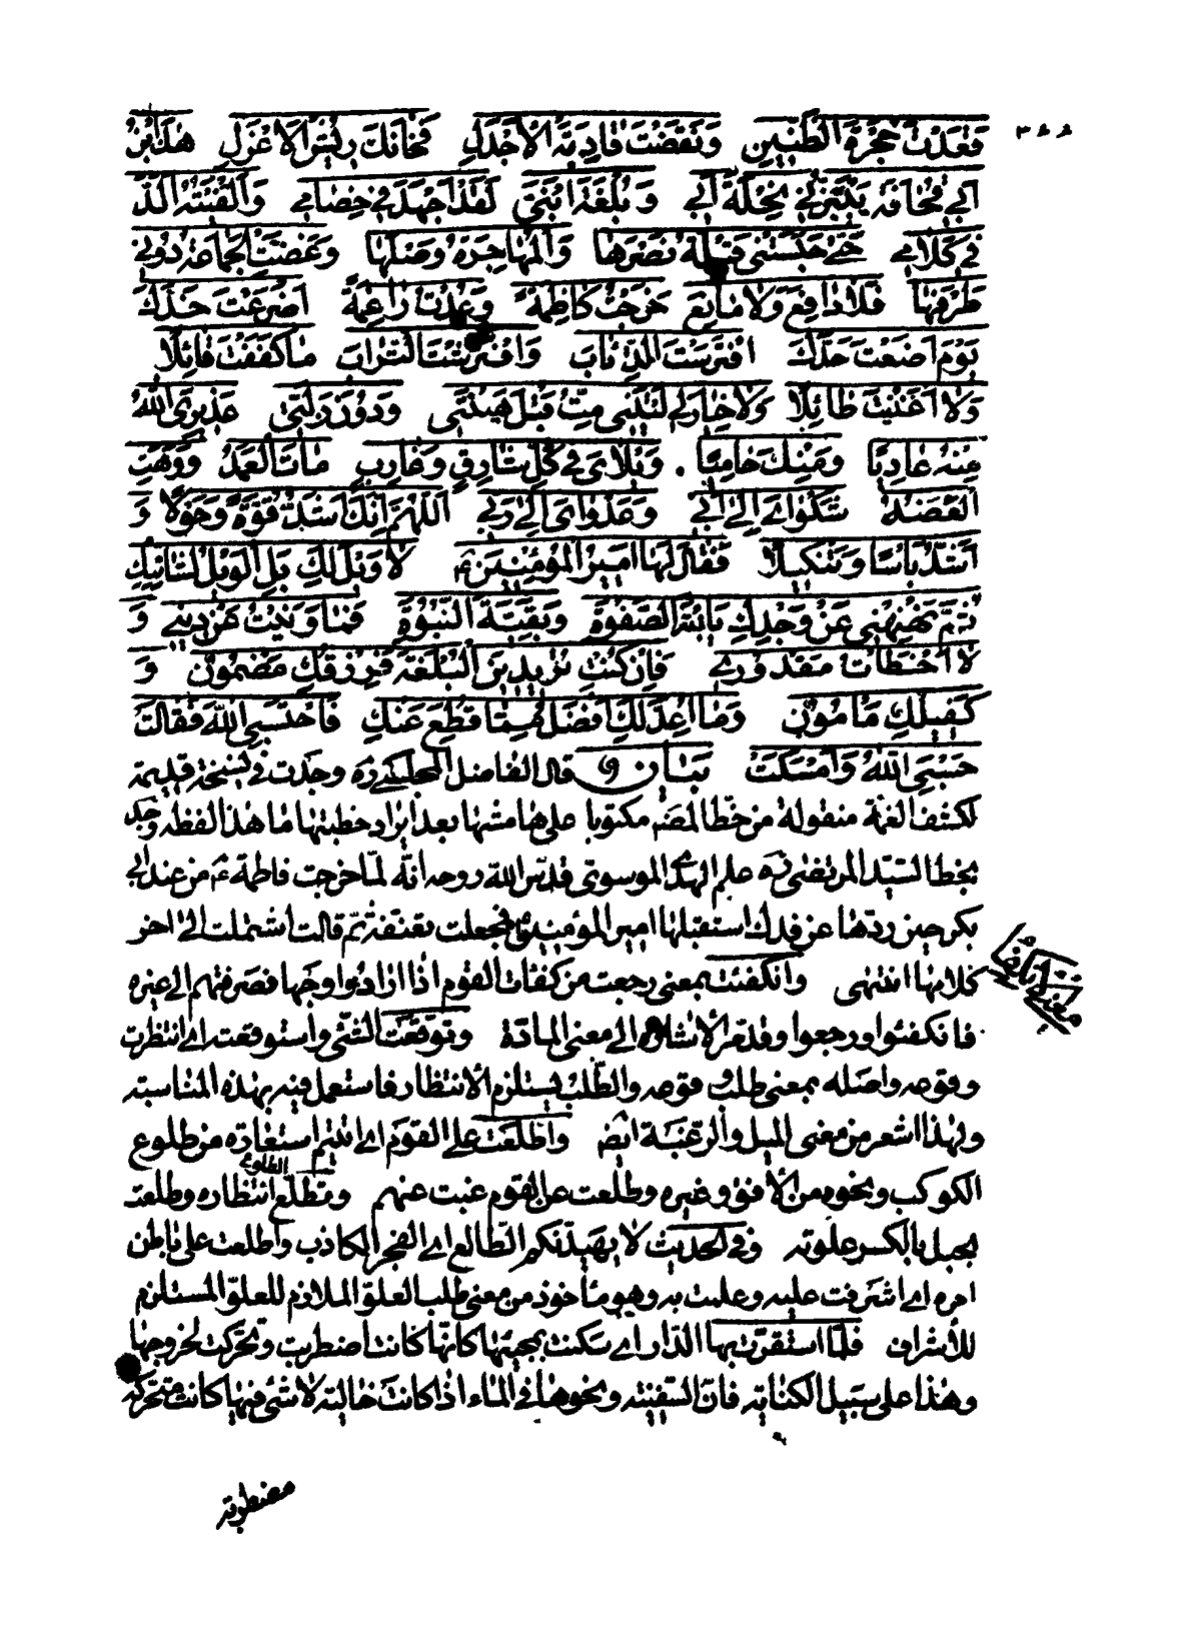 فَقَعَدْتَ حُجْرَةَ الظَّنِينِ وَنَقَضْتَ قَادِمَةَ الْأَجْدَلِ فَخَانَكَ رِيشُ الْأَعْزَلِ هٰذَا ابْنُ
أَبِي قُحَافَةَ يَبْتَزُّنِي نُحَيْلَةَ أَبِي وَبُلْغَةَ ابْنَيَّ لَقَدْ أَجْهَدَ فِي خِصَامِي وَأَلْفَيْتُهُ أَلَدَّ
فِي كَلَامِي حَتَّى حَبَسَتْنِي قَيْلَةُ نَصْرَهَا وَالْمُهَاجِرَةُ وَصْلَهَا وَغَضَّتِ الْجَمَاعَةُ دُونِي
طَرْفَهَا فَلَا دَافِعَ وَلَا مَانِعَ خَرَجْتُ كَاظِمَةً وَعُدْتُ رَاغِمَةً أَضْرَعْتَ خَدَّكَ
يَوْمَ أَضَعْتَ حَدَّكَ افْتَرَسْتَ الذِّئَابَ وَافْتَرَشْتَ التُّرَابَ مَا كَفَفْتَ قَائِلًا
وَلَا أَغْنَيْتَ طَائِلًا وَلَا خِيَارَ لِي لَيْتَنِي مِتُّ قَبْلَ هِينَتِي وَدُونَ زَلَّتِي عَذِيرِيَ اللهُ
مِنْهُ عَادِيًا وَمِنْكَ حَامِيًا . وَيْلَايَ فِي كُلِّ شَارِقٍ وَغَارِبٍ مَاتَ الْعَمَدُ وَوَهَتِ
الْعَضُدُ شَكْوَايَ إِلَى أَبِي وَعَدْوَايَ إِلَى رَبِّي اللّٰهُمَّ إِنَّكَ أَشَدُّ قُوَّةً وَحَوْلًا وَ
أَشَدُّ بَأْسًا وَتَنْكِيلًا فَقَالَ لَهَا أَمِيرُ الْمُؤْمِنِينَ ع لَا وَيْلَ لَكِ بَلِ الْوَيْلُ لِشَانِئِكِ
ثُمَّ نَهْنِهِي عَنْ وَجْدِكِ يَا ابْنَةَ الصَّفْوَةِ وَبَقِيَّةَ النُّبُوَّةِ فَمَا وَنَيْتُ عَنْ دِينِي وَ
لَا أَخْطَأْتُ مَقْدُورِي فَإِنْ كُنْتِ تُرِيدِينَ الْبُلْغَةَ فَرِزْقُكِ مَضْمُونٌ وَ
كَفِيلُكِ مَأْمُونٌ وَمَا أُعِدَّ لَكِ أَفْضَلُ مِمَّا قُطِعَ عَنْكِ فَاحْتَسِبِي اللهَ فَقَالَتْ
حَسْبِيَ اللهُ وَأَمْسَكَتْ بَيَان قال الفاضل المجلسي ره وجدت في نسخة قديمة
لكشف الغمة منقولة من خط المصنف مكتوبا على هامشها بعد ايراد خطبتها ما هذا لفظه وجد
بخط السيد المرتضى ره علم الهدى الموسوي قدس الله روحه انه لما خرجت فاطمة ع من عند ابي
بكر حين ردها عن فدك استقبلها امير المؤمنين ع فجعلت تعنفه ثم قالت اشتملت الى اخر
كلامها انتهى وانكفئت بمعنى رجعت من كفات القوم اذا ارادوا وجها فصرفتهم الى غيره
فانكفئوا ورجعوا وقد مر الاشارة الى معنى المادة وتوقعت الشئ واستوقعته اي انتظرت
وقوعه واصله بمعنى طلب وقوعه والطلب يستلزم الانتظار فاستعمل فيه بهذه المناسبة
ولهذا اشعر من معنى الميل والرغبة ايض واطلعت على القوم اي اتيتهم استعارة من طلوع
الكوكب ونحوه من الافق وغيره وطلعت عن القوم غبت عنهم وتطلع الطلوع انتظاره وطلعت
الجبل بالكسر علوته وفي الحديث لا يهيدنكم الطالع اي الفجر الكاذب واطلعت على باطن
امره اي اشرفت عليه وعلمت به وهو مأخوذ من معنى طلب العلو الملازم للعلو المستلزم
للأشراف فلما استقرت بها الدار اي سكنت بمجيئها كانها كانت اضطربت وتحركت لخروجها
وهذا على سبيل الكناية فان السفينة ونحوها في الماء اذا كانت خالية لا شئ فيها كانت متحركة
مضطربة